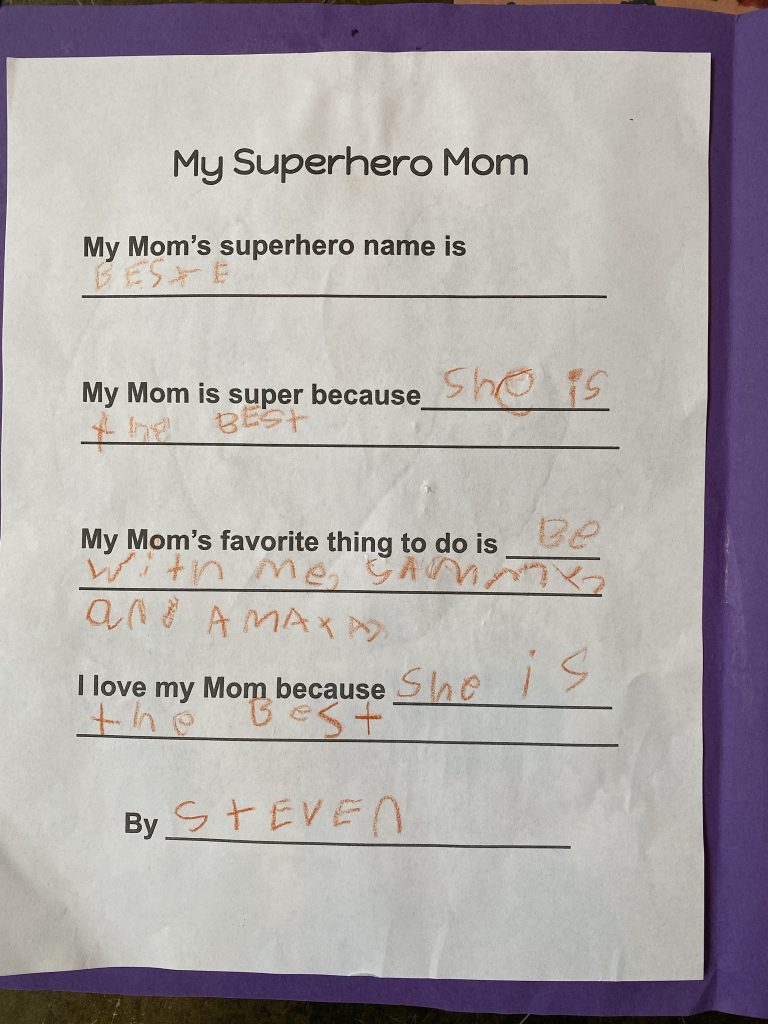 My Superhero Mom
My Mom's superhero name is
BEStE
My Mom is super because She is
the BESt
My Mom's favorite thing to do is Be
with me, SAMMMY,
and
I love my Mom because She is
the Best
By StEVEn